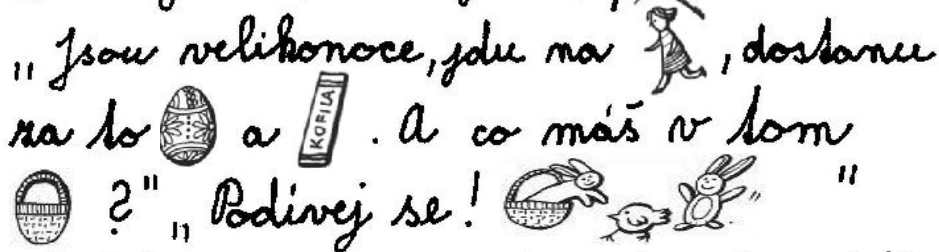 „Jsou velikonoce, jdu na , dostanu
za to a KOFILA . A co máš v tom
?" „Podívej se! "